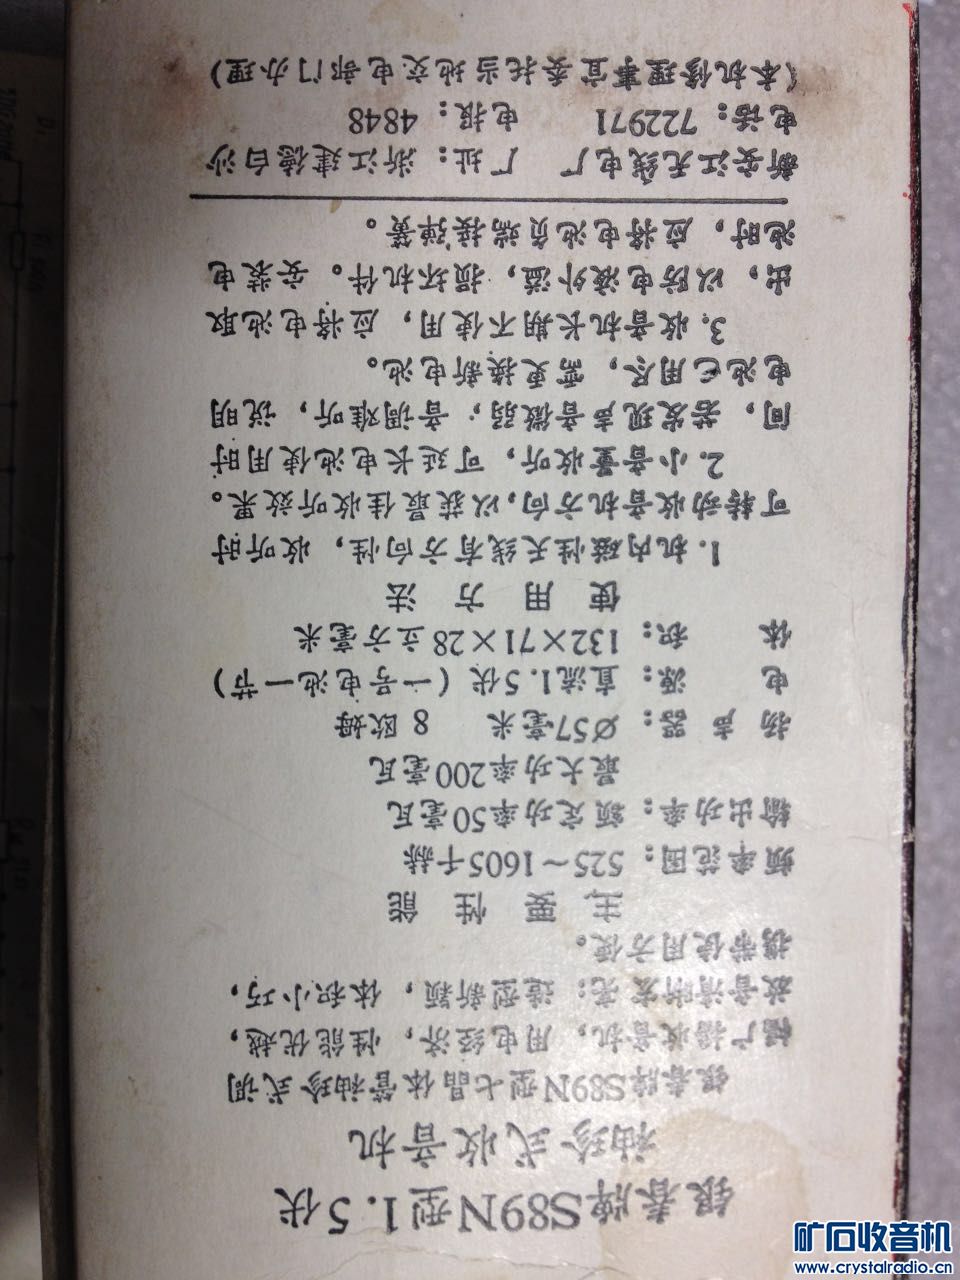 银春牌S89N型1.5伏
袖珍式收音机
银春牌S89N型七晶体管袖珍式调
幅广播收音机，用电经济，性能优越，
放音清晰宏亮；造型新颖，体积小巧，
携带使用方便。
主要性能
频率范围：525～1605千赫
输出功率：额定功率50毫瓦
最大功率200毫瓦
扬声器：Ø57毫米 8欧姆
电源：直流1.5伏（一号电池一节）
体积：132×71×28立方毫米
使用方法
1.机内磁性天线有方向性，收听时
可转动收音机方向，以获最佳收听效果。
2.小音量收听，可延长电池使用时
间，若发现声音微弱，音调难听，说明
电池已用尽，需更换新电池。
3.收音机长期不使用，应将电池取
出，以防电液外溢，损坏机件。安装电
池时，应将电池负端接弹簧。
新安江无线电厂 厂址：浙江建德白沙
电话：722971 电报：4848
（本机修理事宜委托当地交电部门办理）
矿石收音机
www.crystalradio.cn